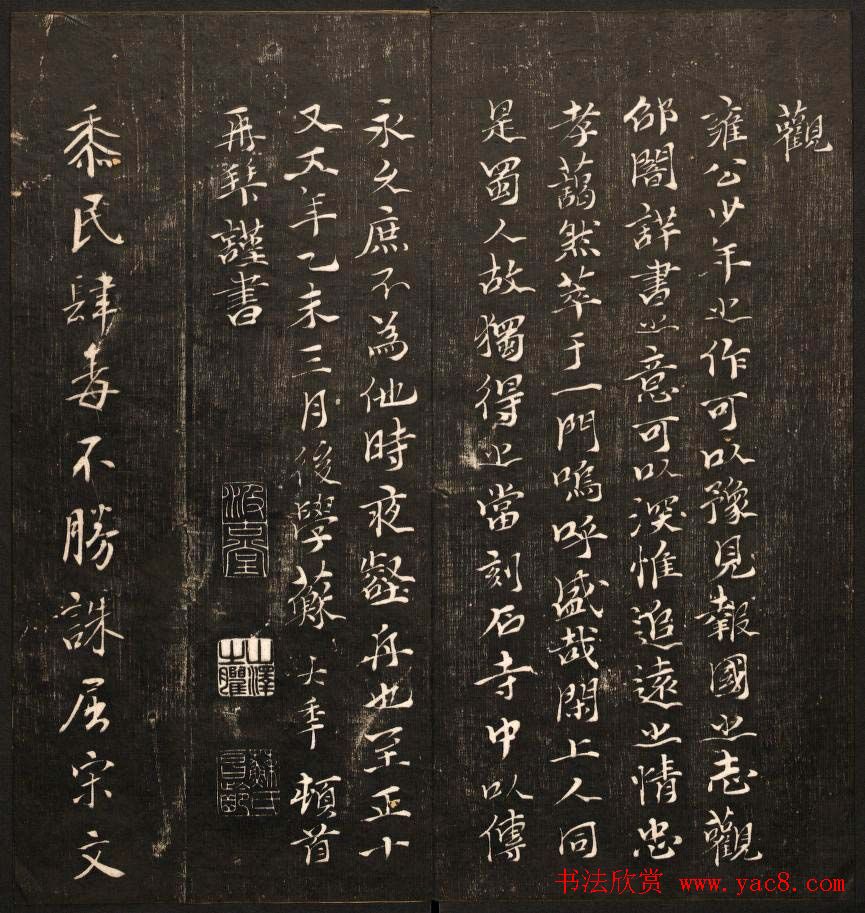 觀
雍公少年之作可以豫見報國之志觀
邵闇詳書之意可以深惟追遠之情忠
孝藹然萃于一門嗚呼盛哉閑上人同
是蜀人故獨得之當刻石寺中以傳
永久庶不為他時夜壑舟也至正十
又五年乙未三月後學蘇大年頓首
再拜謹書
山澤之臞
黍民肆毒不勝誅屈宋文
书法欣赏 www.yac8.com